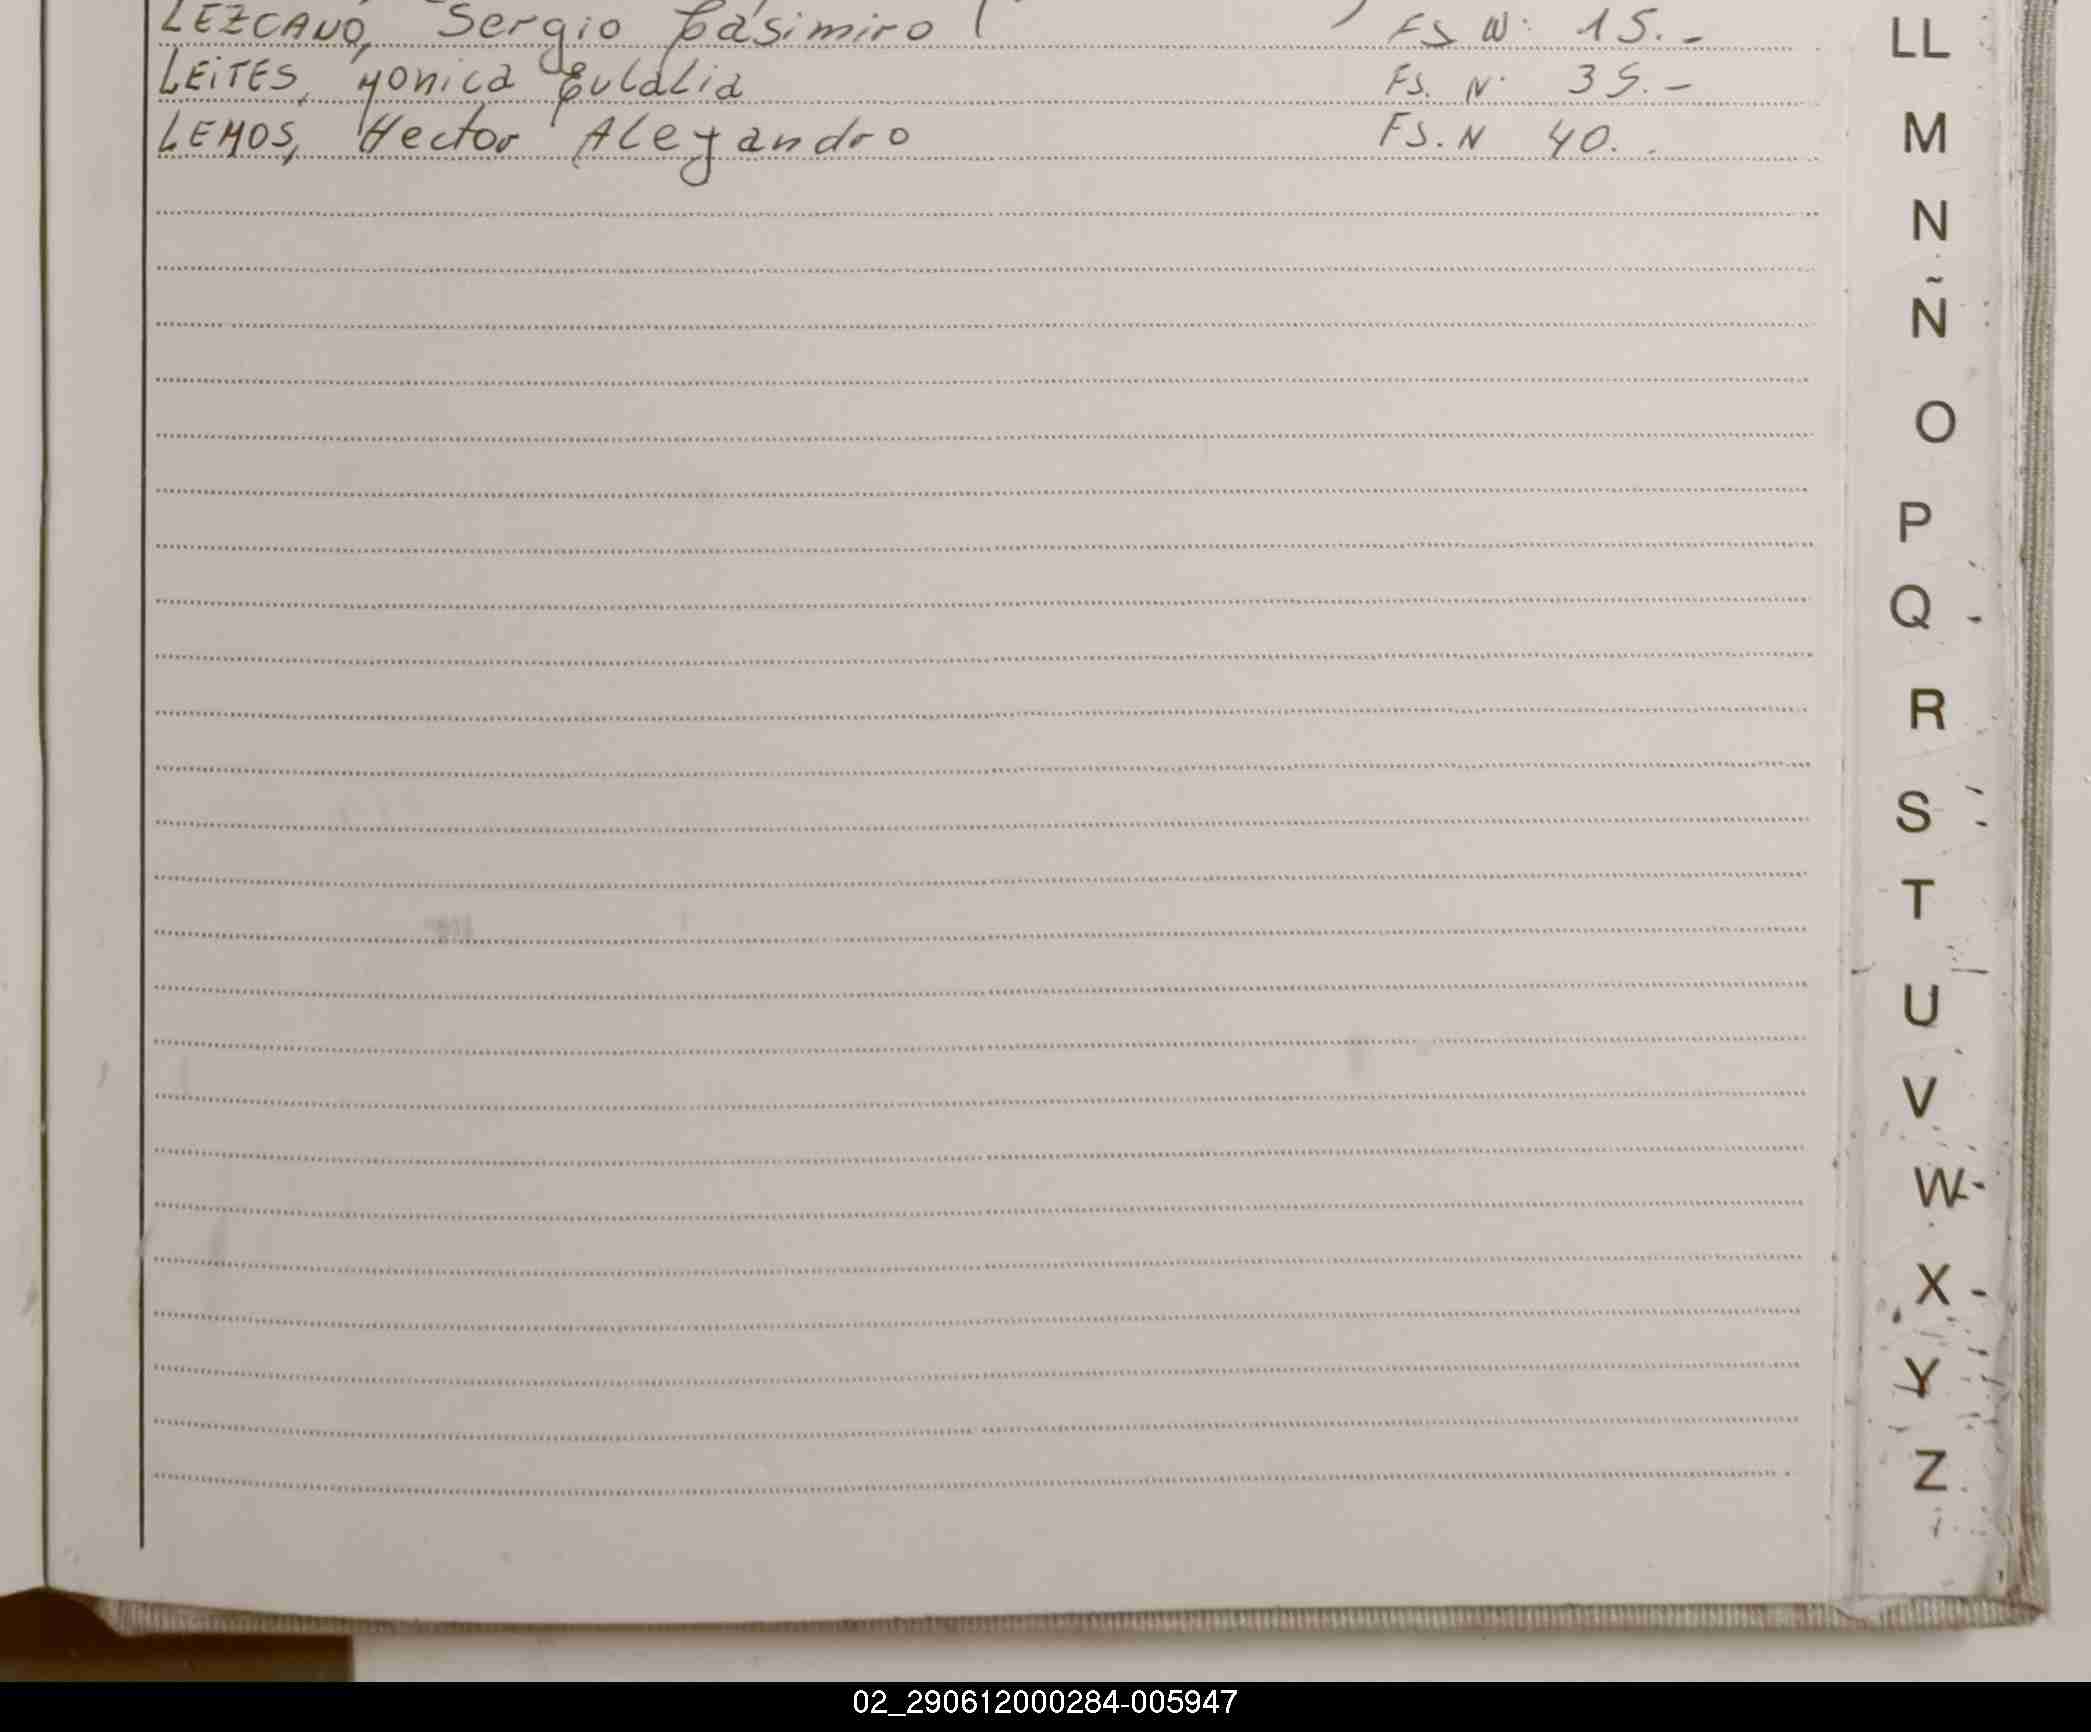 LEZCANO, Sergio Casimiro FS Nº 15.-
LEITES, Monica Eulalia FS. Nº 35.-
LEMOS, Hector Alejandro FS. N 40..
LL
M
N
Ñ
O
P
Q
R
S
T
U
V
W
X
Y
Z
02_290612000284-005947